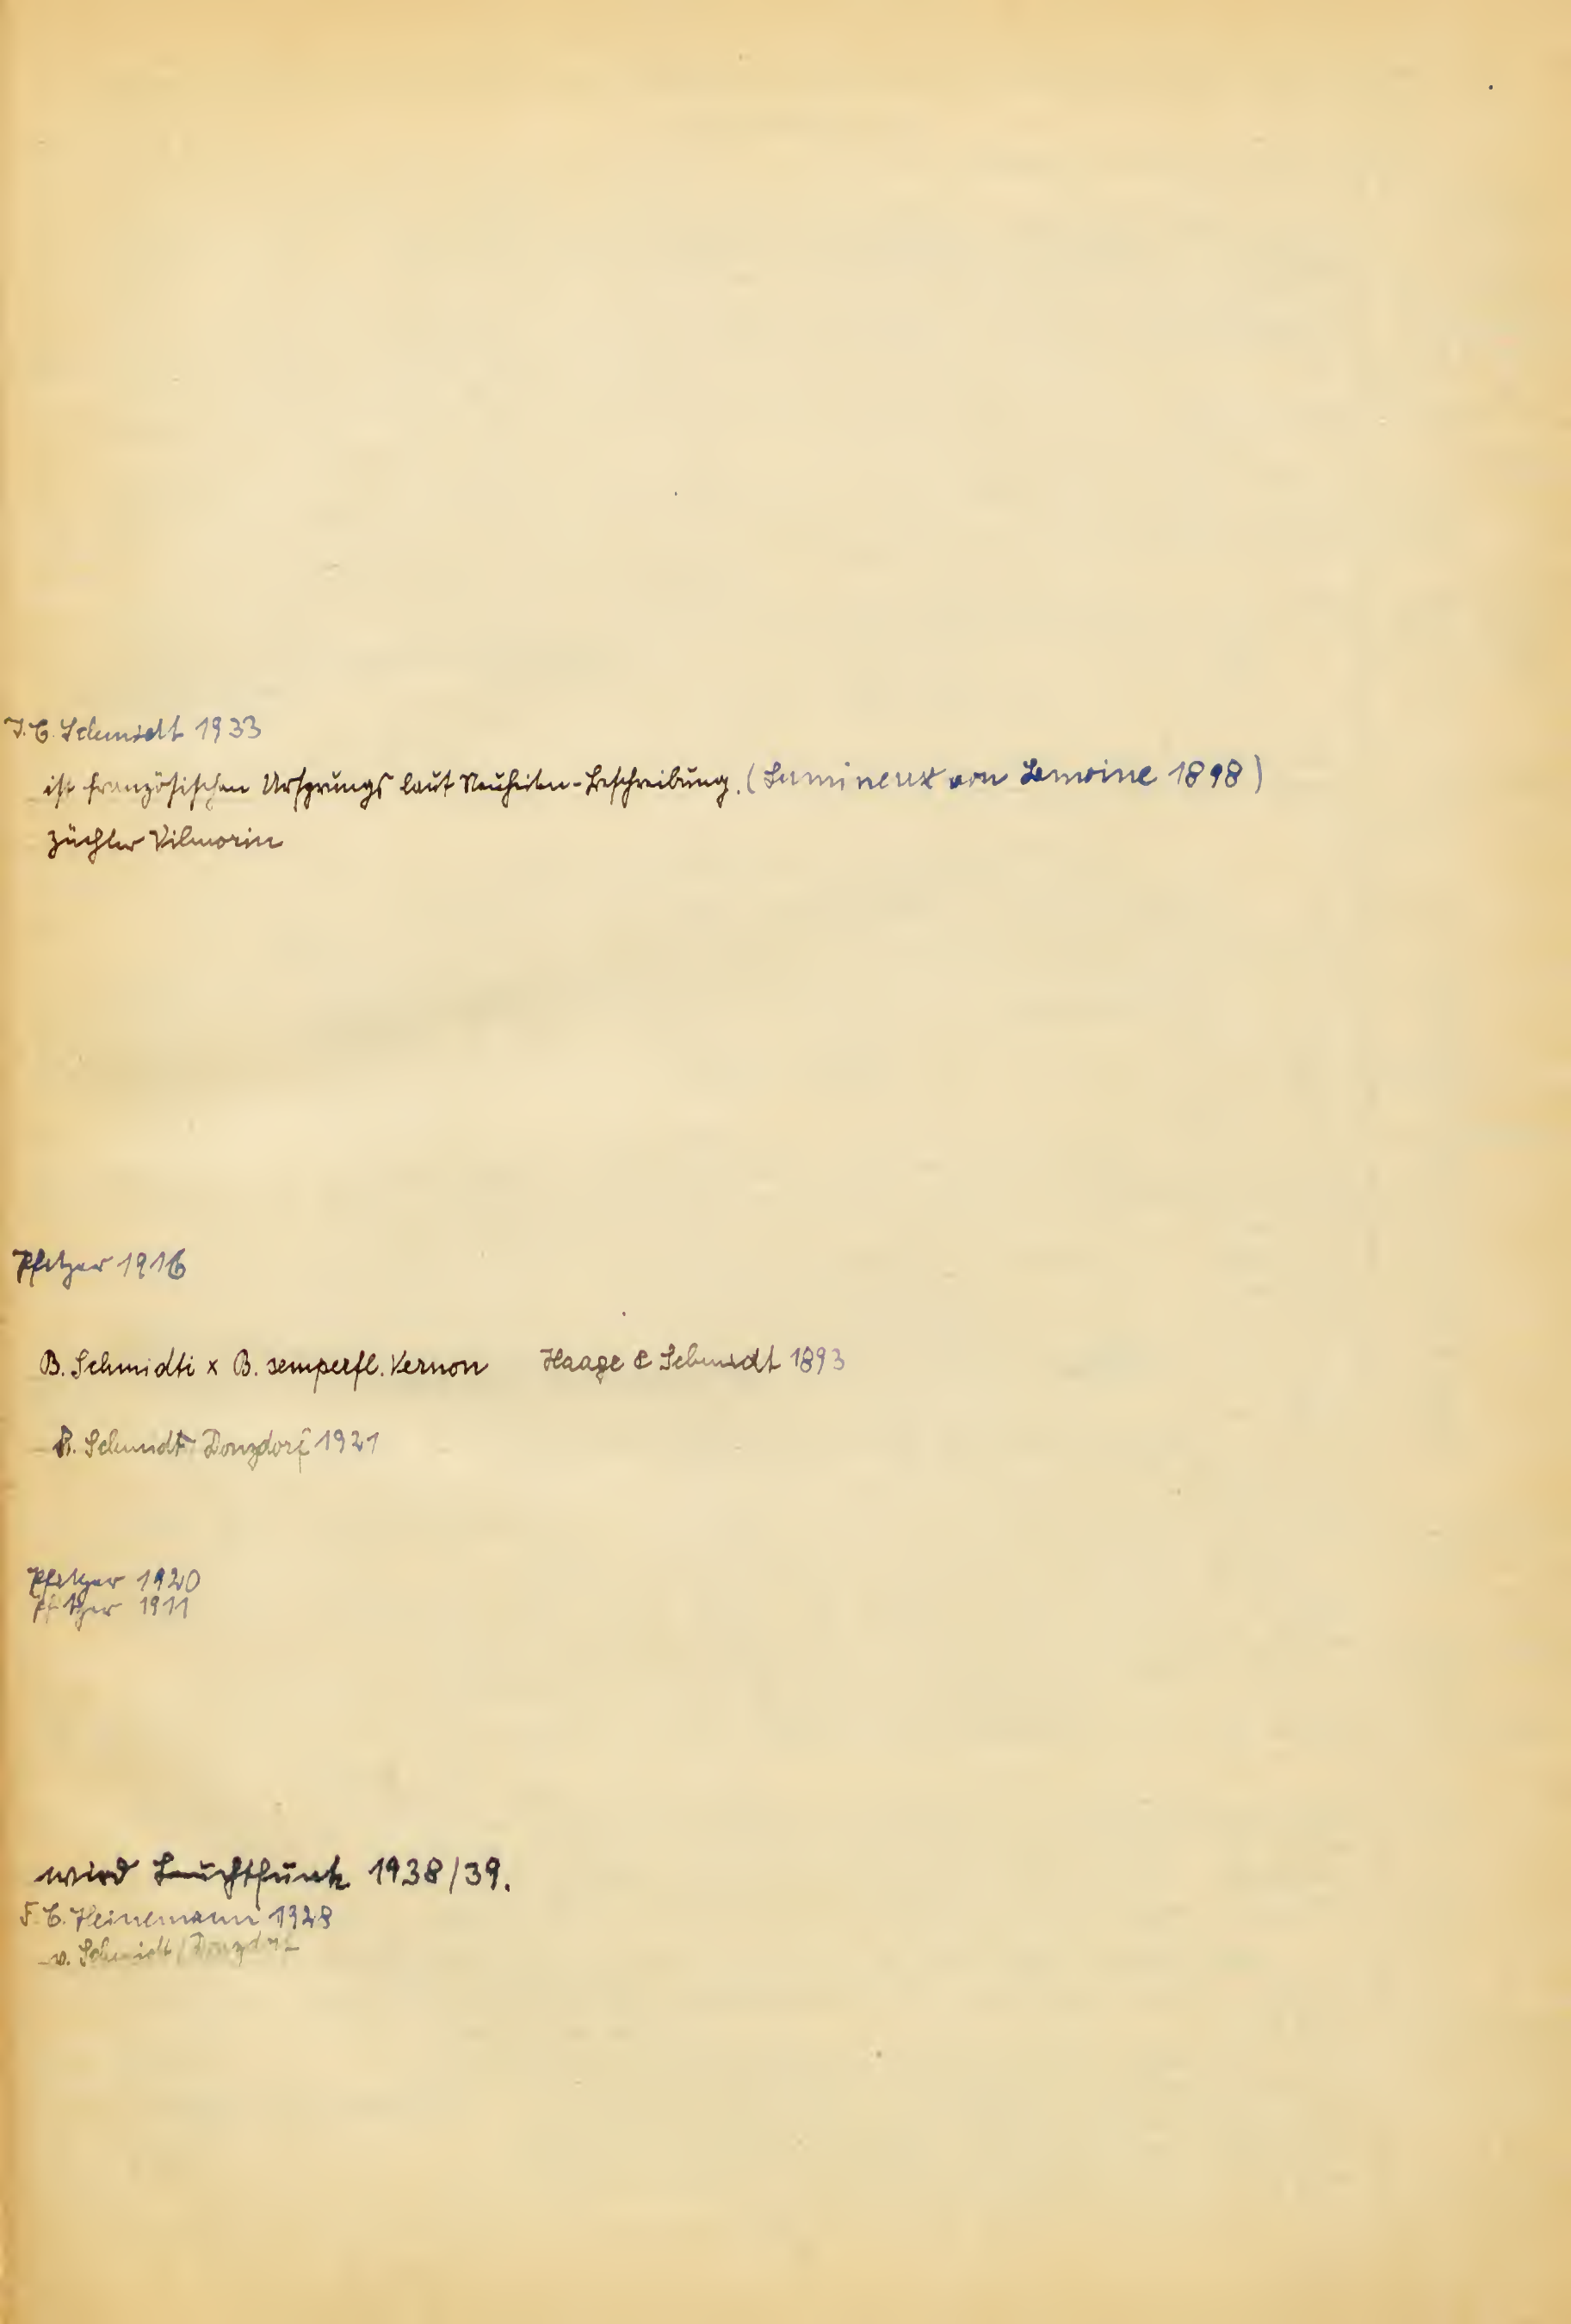 J. C. Schmidt 1933
ist französischen Ursprungs laut Neuheiten-Beschreibung. (Lumineux von Lemoine 1898)
Züchter Vilmorin
Pfitzer 1916
B. Schmidti x B. semperfl. Vernon Haage & Schmidt 1893
Schmidt Donzdorf 1921
Pfitzer 1920
Pfitzer 1911
wird Leuchtfunk 1938/39.
F. C. Heinemann 1928
v. Schmidt Donzdorf